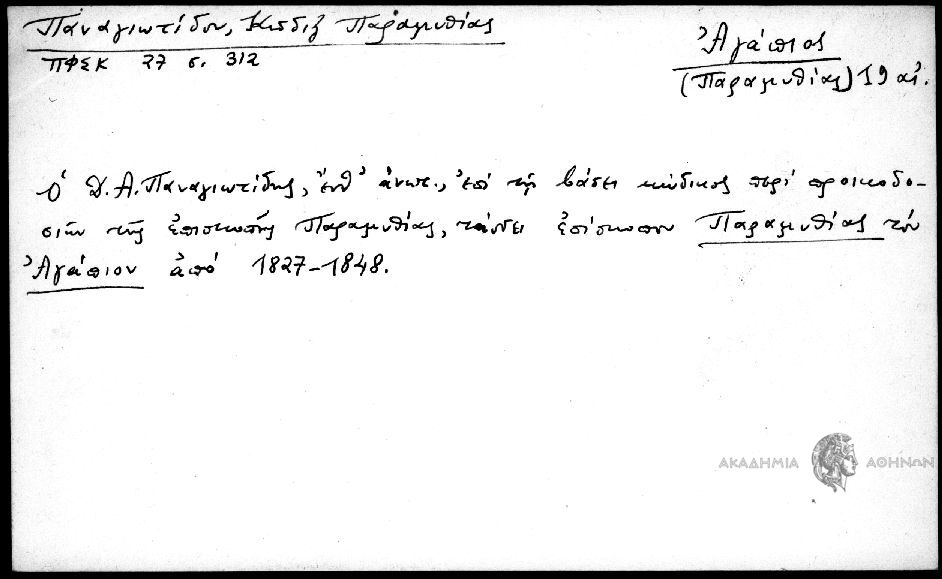 Παναγιωτίδου, Κώδιξ Παραμυθίας
ΠΦΣΚ 27 σ. 312
Ἀγάπιος
(Παραμυθίας) 19 αἰ.
Ὁ Δ. Α. Παναγιωτίδης, ἔνθ' ἀνωτ., ἐπί τῇ βάσει κώδικος περί προικοδο-
σιῶν τῆς ἐπισκοπῆς Παραμυθίας, τάσσει ἐπίσκοπον Παραμυθίας τόν
Ἀγάπιον ἀπό 1827-1848.
ΑΚΑΔΗΜΙΑ ΑΘΗΝΩΝ